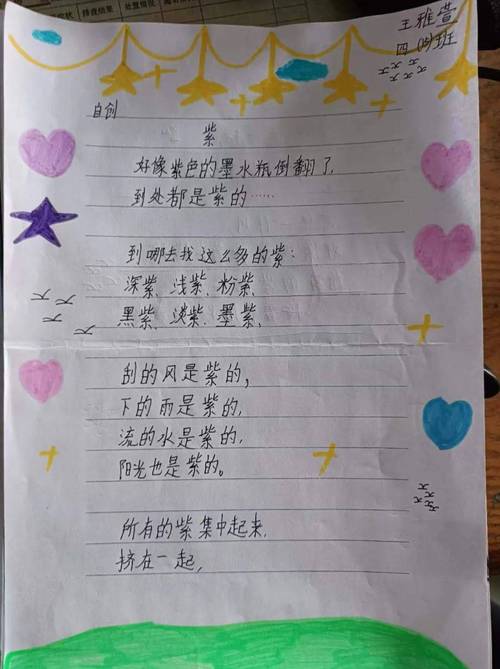 王雅萱
四(5)班
自创
紫
好像紫色的墨水瓶倒翻了,
到处都是紫的……
到哪去找这么多的紫:
深紫、浅紫、粉紫、
黑紫、淡紫、墨紫、
刮的风是紫的,
下的雨是紫的,
流的水是紫的,
阳光也是紫的。
所有的紫集中起来,
挤在一起,